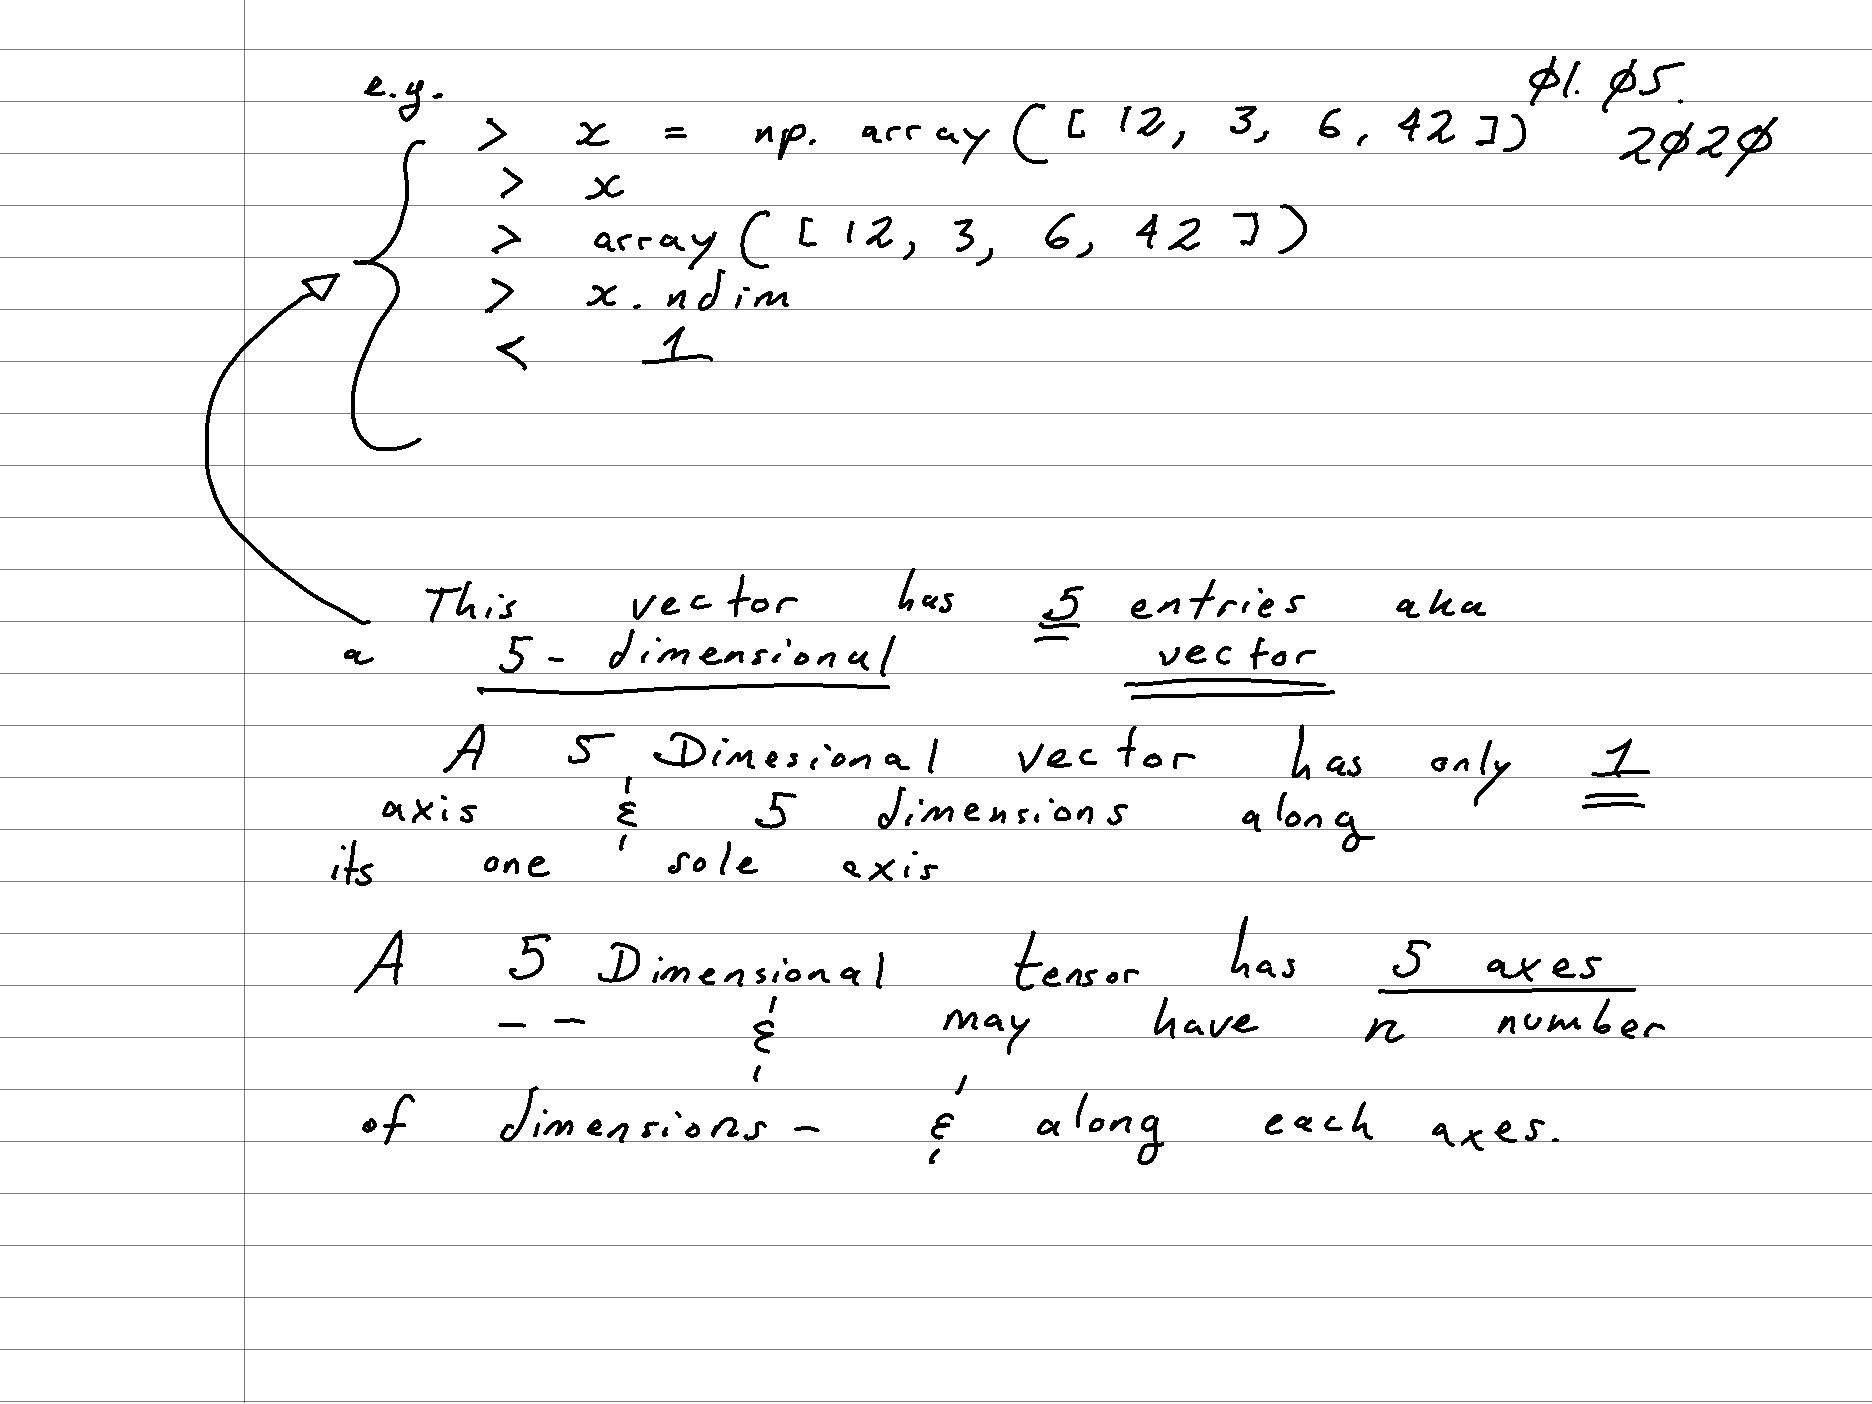 e.g.
> x = np. array ( [ 12, 3, 6, 42 ] ) 01. 05.
2020
> x
> array ( [ 12, 3, 6, 42 ] )
> x. ndim
< 1
This vector has 5 entries aka
a 5 - dimensional vector
A 5 Dimesional vector has only 1
axis & 5 dimensions along
its one sole axis
A 5 Dimensional tensor has 5 axes
- - & may have n number
of dimensions - & along each axes.